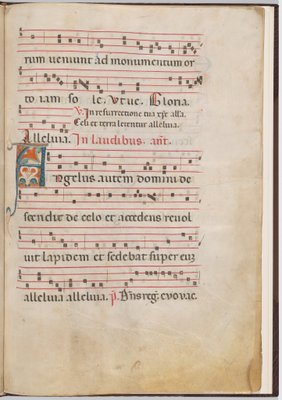 rum veniunt ad monumentum or
to iam so le. Vt ue. Gloria.
V. In resurrectione tua xpe alla.
Celi et terra letentur alleluia.
Alleluia. In laudibus. añt.
Angelus autem domini de
scendit de celo et accedens reuol
uit lapidem et sedebat super eum
alleluia alleluia. p. Dñs reg. euouae.